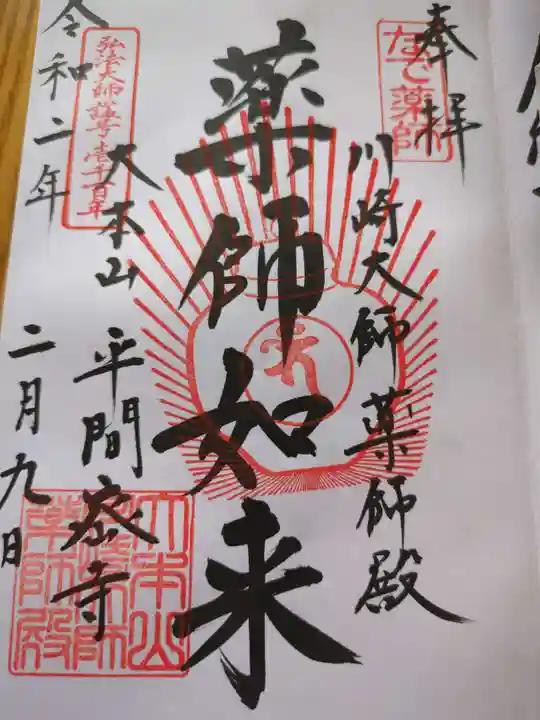 奉拝
なで薬師
川崎大師薬師殿
薬師如来
弘法大師諡号壱千百年
大本山
平間寺
令和二年
二月九日
大本山
川崎大師
薬師殿